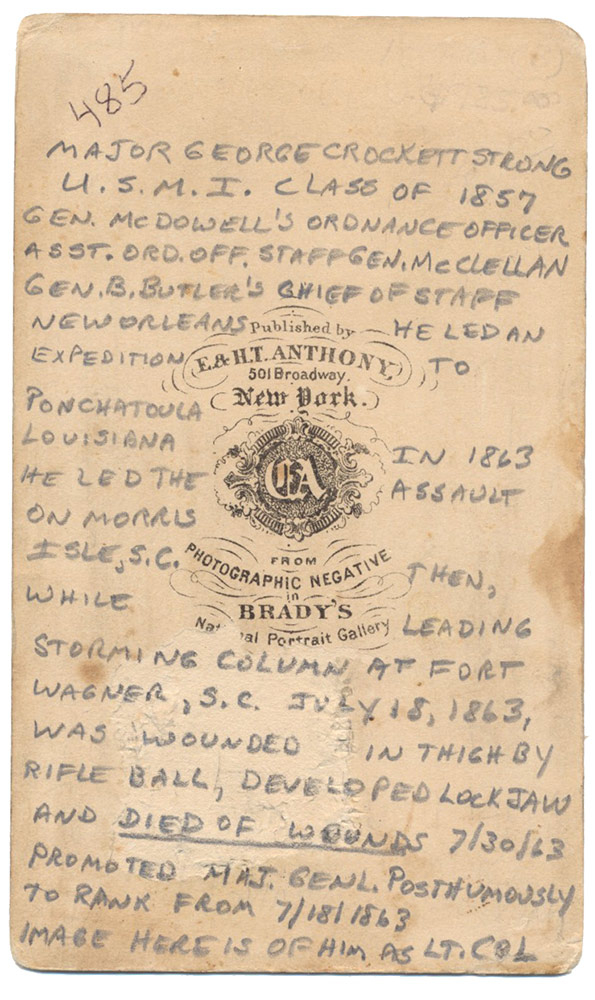 485
MAJOR GEORGE CROCKETT STRONG
U.S.M.I. CLASS OF 1857
GEN. McDOWELL'S ORDNANCE OFFICER
ASST. ORD. OFF. STAFF GEN. McCLELLAN
GEN. B. BUTLER'S CHIEF OF STAFF
NEW ORLEANS HE LED AN
Published by
EXPEDITION TO
E. & H.T. ANTHONY,
501 Broadway.
New York.
PONCHATOULA
LOUISIANA IN 1863
EA
HE LED THE ASSAULT
ON MORRIS
ISLE, S.C. THEN,
FROM
PHOTOGRAPHIC NEGATIVE
in
WHILE LEADING
BRADY'S
Nat nal Portrait Gallery
STORMING COLUMN AT FORT
WAGNER, S.C. JULY 18, 1863,
WAS WOUNDED IN THIGH BY
RIFLE BALL, DEVELOPED LOCKJAW
AND DIED OF WOUNDS 7/30/63
PROMOTED MAJ. GENL. POSTHUMOUSLY
TO RANK FROM 7/18/1863
IMAGE HERE IS OF HIM AS LT. COL